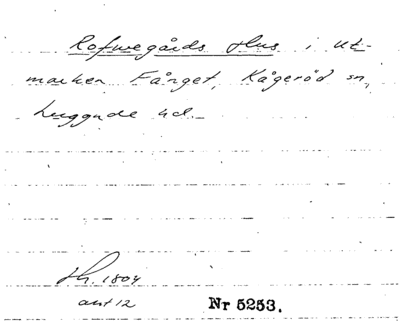 Rofwegårds Hus i ut-
marken Fånget, Kågeröd sn,
Luggude hd.
Hh. 1804
akt 12
Nr 5253.